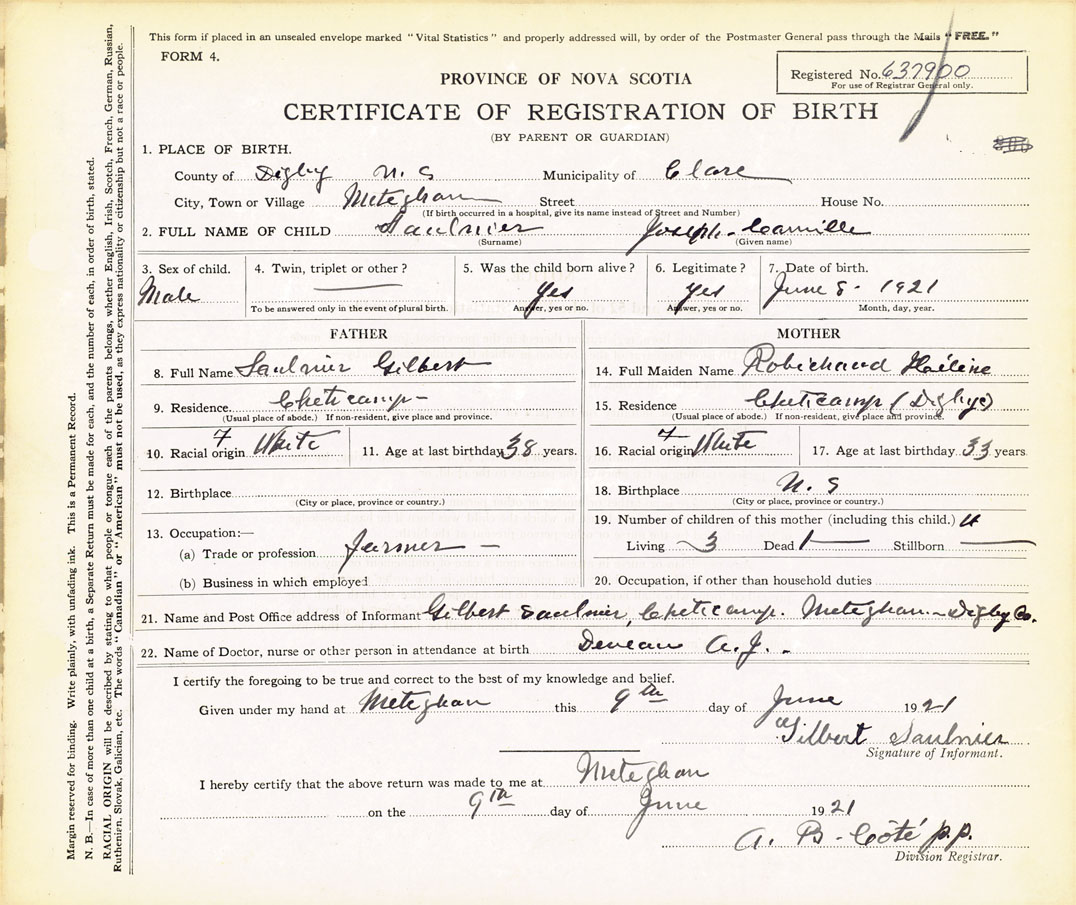 This form if placed in an unsealed envelope marked "Vital Statistics" and properly addressed will, by order of the Postmaster General pass through the Mails "FREE."
FORM 4.
PROVINCE OF NOVA SCOTIA
Registered No. 637900
For use of Registrar General only.
CERTIFICATE OF REGISTRATION OF BIRTH
(BY PARENT OR GUARDIAN)
1. PLACE OF BIRTH.
County of Digby N. S Municipality of Clare
City, Town or Village Meteghan Street House No.
(If birth occurred in a hospital, give its name instead of Street and Number)
2. FULL NAME OF CHILD Saulnier Joseph-Camille
(Surname) (Given name)
3. Sex of child. 4. Twin, triplet or other? 5. Was the child born alive? 6. Legitimate? 7. Date of birth.
Male Yes Yes June 8- 1921
To be answered only in the event of plural birth. Answer, yes or no. Answer, yes or no. Month, day, year.
FATHER MOTHER
8. Full Name Saulnier Gilbert 14. Full Maiden Name Robichaud
9. Residence. Cheticamp- 15. Residence Cheticamp (Digby)
(Usual place of abode.) If non-resident, give place and province. (Usual place of abode.) If non-resident, give place and province.
10. Racial origin White 11. Age at last birthday 38 years. 16. Racial origin White 17. Age at last birthday 33 years
12. Birthplace 18. Birthplace N. S
(City or place, province or country.) (City or place, province or country.)
13. Occupation:— 19. Number of children of this mother (including this child.) 4
(a) Trade or profession farmer - Living 3 Dead 1 Stillborn
(b) Business in which employed 20. Occupation, if other than household duties
21. Name and Post Office address of Informant Gilbert Saulnier, Cheticamp. Meteghan-Digby Co.
22. Name of Doctor, nurse or other person in attendance at birth Deveau A. J. -
I certify the foregoing to be true and correct to the best of my knowledge and belief.
Given under my hand at Meteghan this 9th day of June 1921
Gilbert Saulnier
Signature of Informant.
I hereby certify that the above return was made to me at Meteghan
on the 9th day of June 1921
A. B- Côté p.p.
Division Registrar.
Margin reserved for binding. Write plainly, with unfading ink. This is a Permanent Record.
N. B.—In case of more than one child at a birth, a Separate Return must be made for each, and the number of each, in order of birth, stated.
RACIAL ORIGIN will be described by stating to what people or tongue each of the parents belongs, whether English, Irish, Scotch, French, German, Russian,
Ruthenien, Slovak, Galician, etc. The words "Canadian" or "American" must not be used, as they express nationality or citizenship but not a race or people.